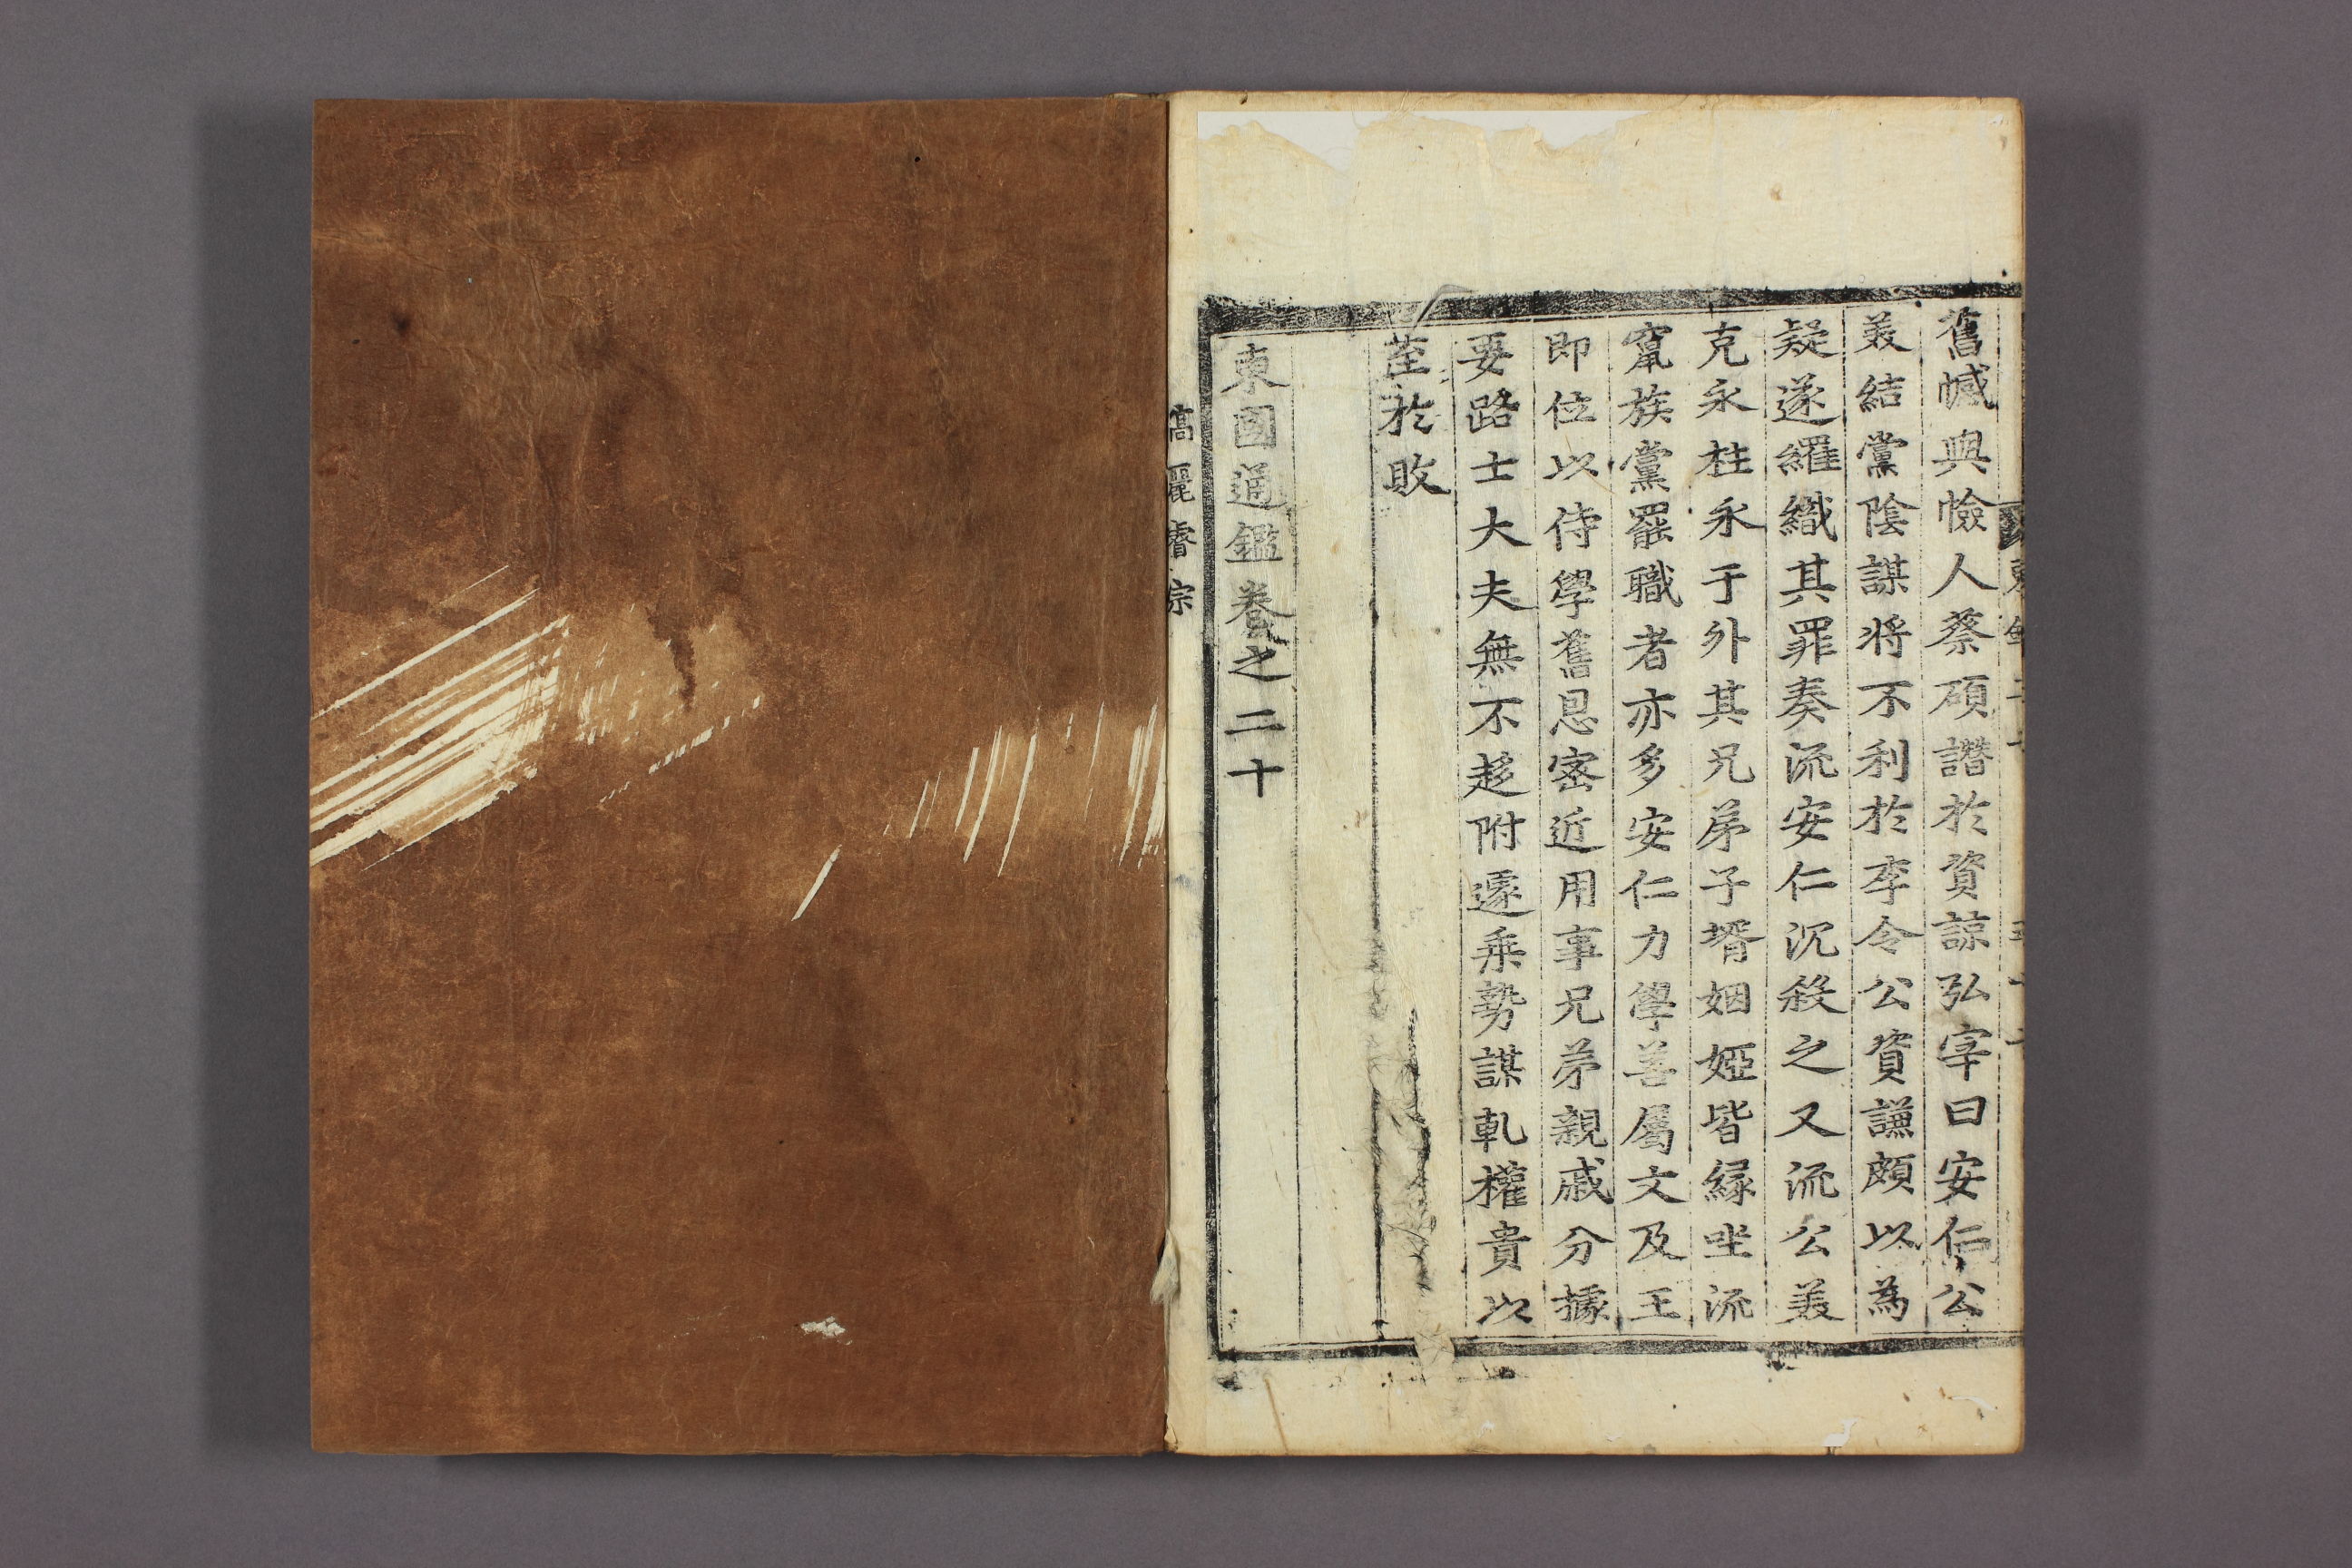 舊憾與憸人蔡碩譖於資諒弘字曰安仁公
羙結黨陰謀將不利於李令公資謙頗以為
疑遂羅織其罪奏流安仁沉殺之又流公羙
克永柱永于外其兄弟子壻姻婭皆縁坐流
竄族黨罷職者亦多安仁力學善屬文及王
即位以侍學舊恩宻近用事兄弟親戚分據
要路士大夫無不趍附遽乗勢謀軋權貴以
至於敗
東國通鑑卷之二十
高麗睿宗